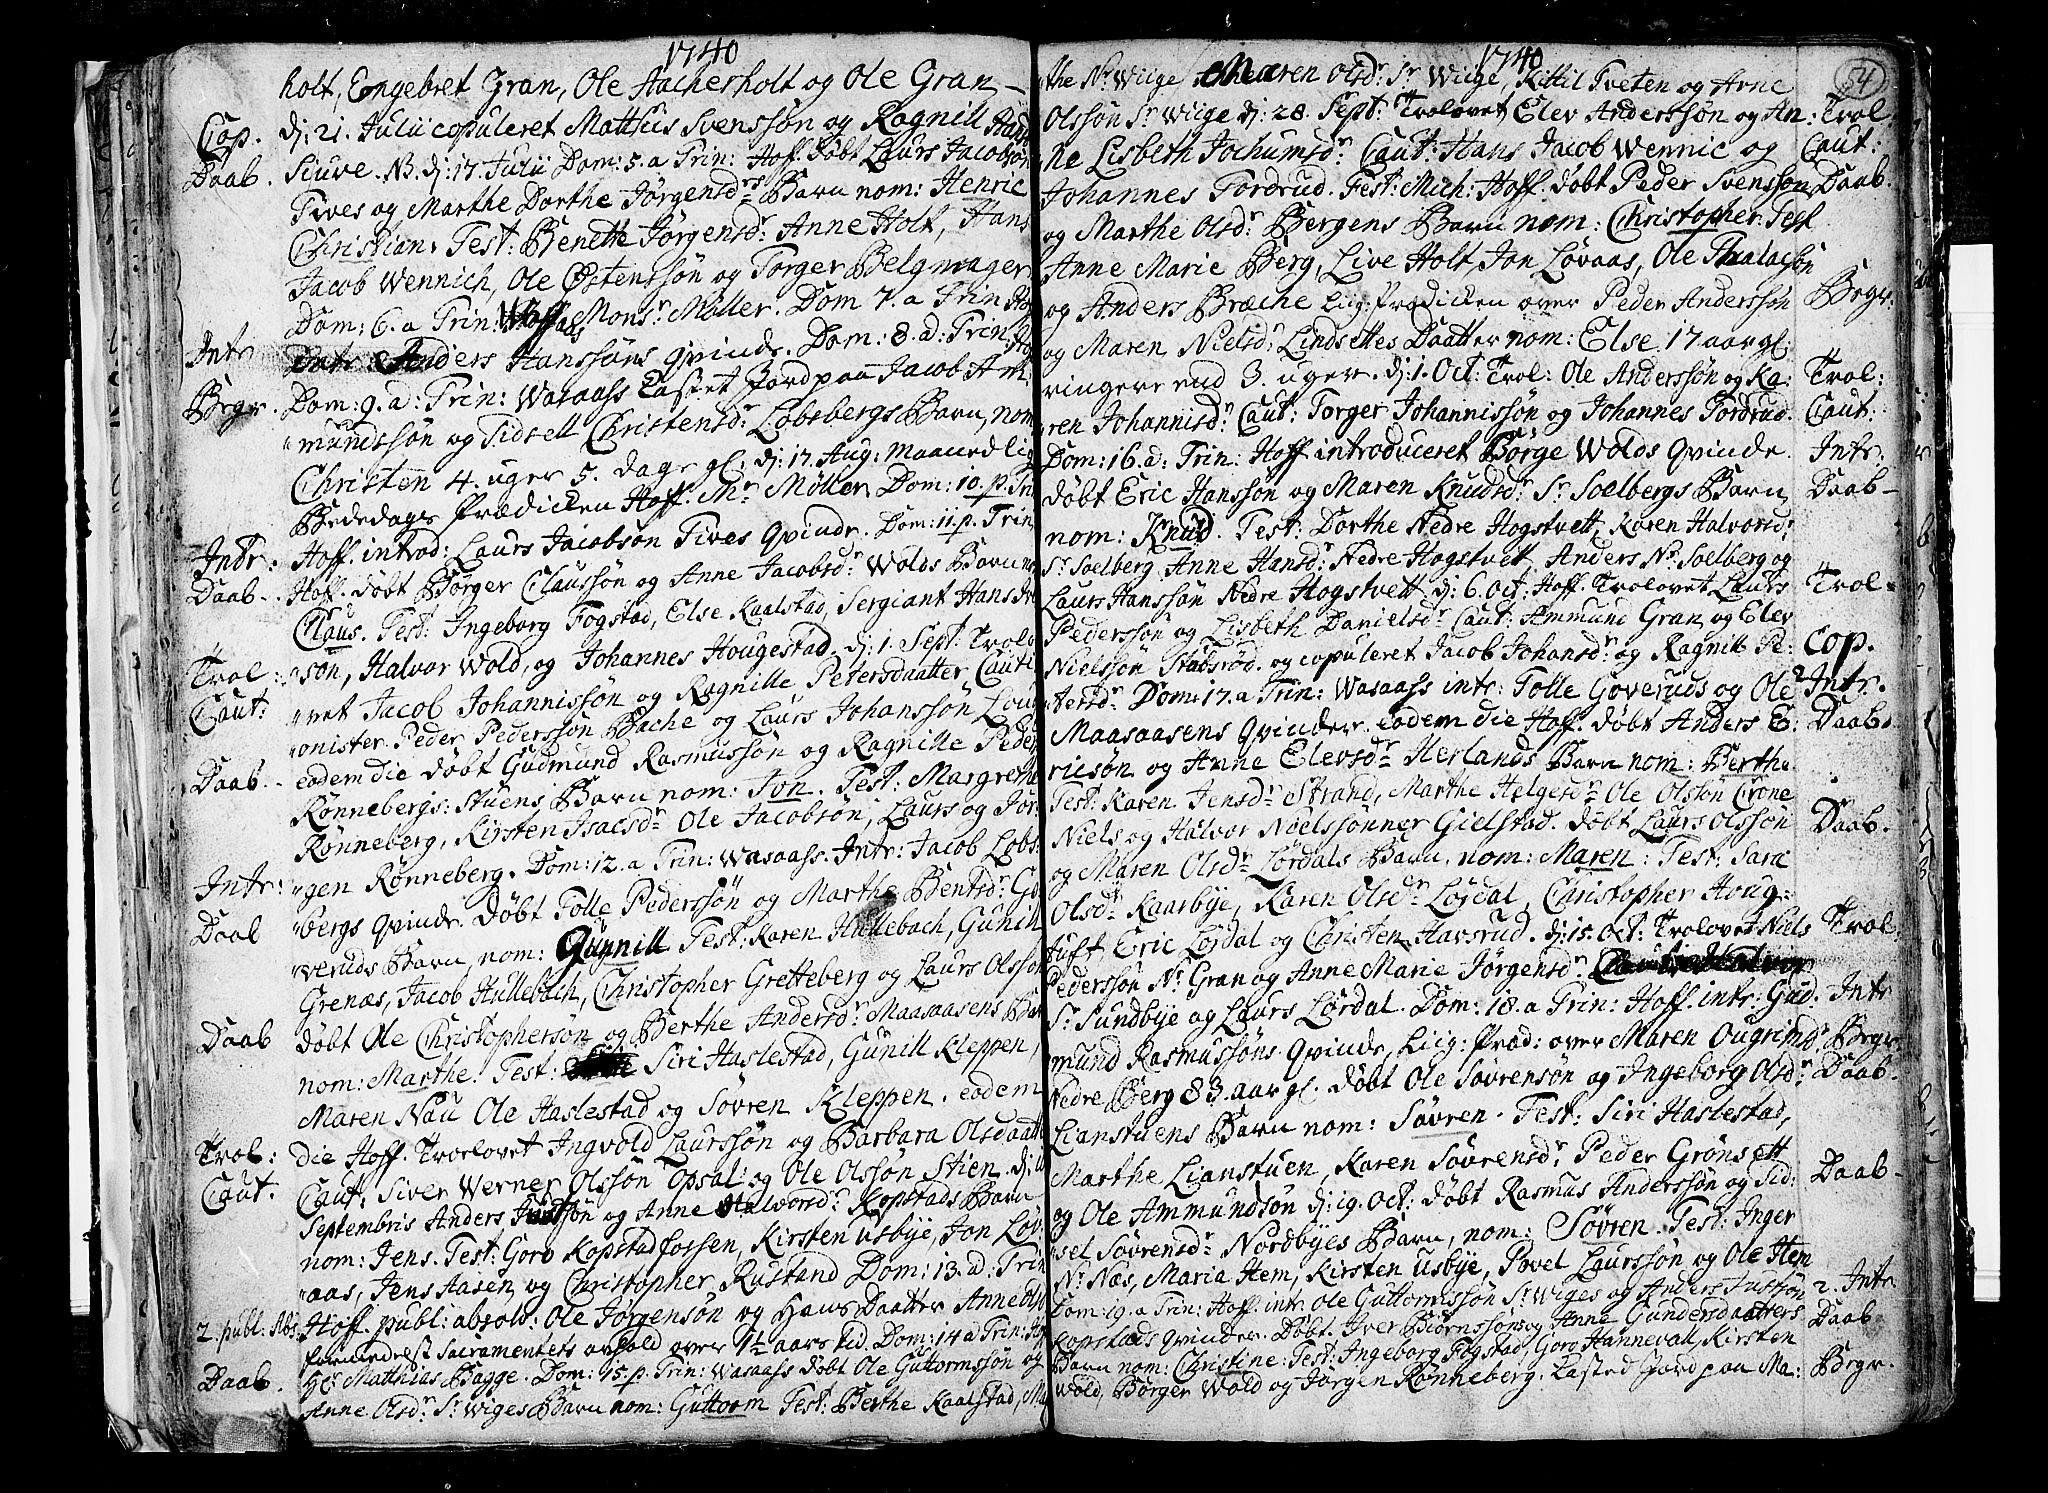 1740
holt, Engebret Gran, Ole Aacherholt og Ole Gran
Cop. Dj: 21. Julii copuleret Matthis Svenssøn og Ragnill
Daab. Siuve. NB. dj: 17. Julii Dom: 5. a Trin: Hoff. døbt Laurs Jacobsøn
Tives og Marthe Dorthe Jørgensdr Barn nom: Henric
Christian. Test: Benette Jørgensdr Anne Holt, Hans
Jacob Wennich, Ole Østenssøn og Torger Belgmager
Dom: 6. a Trin: Monsr Møller. Dom 7. a Trin
Intr Anders Hanssøns qvinde. Dom: 8. a: Trin:
Begr. Dom: 9. a: Trin: Wasaass Castet Jord paa Jacob Am:
mundssøn og Sidsell Christensdr Lobsbergs Barn, nom
Christen 4. uger 5. dage gl. dj: 17. Aug: maanedlig
Bededags Prædicken Hoff. Mr Møller. Dom: 10. p. Tri
Intr: Hoff. introd: Laurs Jacobsøn Tives Qvinde. Dom: 11. p. Trin
Daab. Hoff. døbt Børger Claussøn og Anne Jacobsdr Wolds Barn
Claus. Test: Ingeborg Fogstad, Else Kaalstad, Sergiant Hans
Trol: søn, Halvor Wold, og Johannes Hougestad. dj: 1. Sept: Trolo
Caut: vet Jacob Johannissøn og Ragnille Petersdaatter Cauti
onister Peder Pederssøn Bache og Laurs Johanssøn
Daab. eodem die døbt Gudmund Rasmussøn og Ragnille Peder
Rønnebergs: Stuens Barn nom: Jon. Test: Margrethe
Rønneberg, Kirsten Isacsdr Ole Jacobsøn, Laurs og Jør
Intr: gen Rønneberg. Dom: 12. a Trin: Wasaass. Intr: Jacob Lobs
Daab bergs qvinde. Døbt Tolle Pederssøn og Marthe Bentsdr Go
veruds Barn nom: Gunnill Test: Karen Hullebach, Gunill
Grenæs, Jacob Hullebach, Christopher Gretteberg og Laurs Olssøn
Daab døbt Ole Christophersøn og Berthe Andersdr Maasaasens Bar
nom: Marthe. Test: Siri Haslestad, Gunill Kleppen,
Maren Nau Ole Haslestad og Søvren Kleppen. eodem
Trol: die Hoff. Trolovet Ingvold Laurssøn og Barbara Olsdaatt
Caut. Caut: Siver Werner Olssøn Opsal: og Ole Olssøn Stien. dj:
Septembris Anders Justsøn og Anne Halvorsdr Kopstads Barn
nom: Jens. Test: Goro Kopstadfossen, Kirsten Usbye, Jon Løv
aas, Jens Aasen og Christopher Rustand Dom: 13. a: Trin
2. publ: Abs: Hoff. publ: absolv: Ole Jørgensøn og Hans Daatter Anne
formedelst Sacramentets avhold over 1½ aars tid. Dom: 14 a Trin:
Hr Matthias Bagge. Dom: 15. p. Trin: Wasaass døbt Ole Guttormssøn og
Daab. Anne Olsdr Sr Wiges Barn nom: Guttorm Test: Berthe Kaalstad, Ma
1740
54
the Nr Wiige Maren Olsdr Sr Wiige, Kittil Tveten og Arne
Olssøn Sr Wiige dj: 28. Sept: Trolovet Elev Anderssøn og An: Trol:
ne Lisbeth Jochumsdr Caut: Hans Jacob Wennic og Caut:
Johannes Fordrud. Fest: Mich: Hoff. døbt Peder Svenssøn Daab.
og Marthe Olsdr Bergens Barn nom: Christopher. Test
Anne Marie Berg, Live Holt, Jon Løvaas, Ole
og Anders Bræche Liig: Prædicken over Peder Anderssøn Begr.
og Maren Nielsdr Lindsettes Daatter nom: Else 17 aar gl:
ringere end 3. uger. dj: 1. Oct: Trol: Ole Anderssøn og Ka: Trol:
ren Johannisdr Caut: Torger Johannissøn og Johannes Fordrud Caut:
Dom: 16. a: Trin: Hoff introduceret Børge Wolds Qvinde. Intr:
døbt Eric Hanssøn og Maren Knudsdr Sr Soelbergs Barn Daab
nom: Knud. Test: Dorthe Nedre Hogstvett, Karen Halvorsdr
Sr Soelberg Anne Hansdr Nedre Hogstvett, Anders Nr Soelberg og
Laurs Hanssøn Nedre Hogstvett. dj: 6. Oct: Hoff. Trolovet Laurs Trol
Pederssøn og Lisbeth Danielsdr Caut: Ammund Gran og Elev
Nielssøn Stubsrød. og copuleret Jacob Johansdr og Ragnill Pe: Cop.
tersdr Dom: 17. a Trin: Wasaass intr: Tolle Goveruds og Ole 2 Intr.
Maasaasens Qvinder. eodem die Hoff. døbt Anders E: Daab.
ricsøn og Anne Elevsdr Herlands Barn nom: Berthe
Test: Karen Jensdr Strand, Marthe Helgesdr Ole Olssøn Crone
Niels og Halvor Nielssønner Gielstad. døbt Laurs Olssøn Daab.
og Maren Olsdr Lørdals Barn. nom: Maren: Test: Sara
Olsdr Kaarbye, Karen Olsdr Lørdal, Christopher Houg:
tuft, Eric Lørdal og Christen Havsrud. dj: 15. Oct: Trolovet Niels Trol:
Pederssøn Nr Gran og Anne Marie Jørgensdr
Sr Sundbye og Laurs Lørdal. Dom: 18. a Trin: Hoff. intr: Gud: Intr
mund Rasmussøns Qvinde, Liig: Præd: over Maren Ougrimsdr Begr.
Nedre Berg 83. aar gl. døbt Ole Søvrensøn og Ingeborg Olsdr Daab.
Lianstuens Barn nom: Søvren. Test: Siri Haslestad,
Marthe Lianstuen, Karen Søvrensdr Peder Grønsett
og Ole Ammundsøn dj: 19. Oct: døbt Rasmus Anderssøn og Sid: Daab
sel Søvrensdr Nordbyes Barn, nom: Søvren. Test: Inger
Nr Næs, Maria Hem, Kirsten Usbye, Povel Laurssøn og Ole Hem
Dom: 19. a Trin: Hoff. intr. Ole Guttormssøn Sr Wiges og Anders Justsøn 2. Intr
Kopstads Qvinder. Døbt Iver Biørnssøns og Anne Gundersdaatters Daab
Barn nom: Christine: Test: Ingeborg Fogstad, Goro Hannevall, Kirsten
Wold, Børger Wold og Jørgen Rønneberg. Casted Jord paa Ma: Begr.